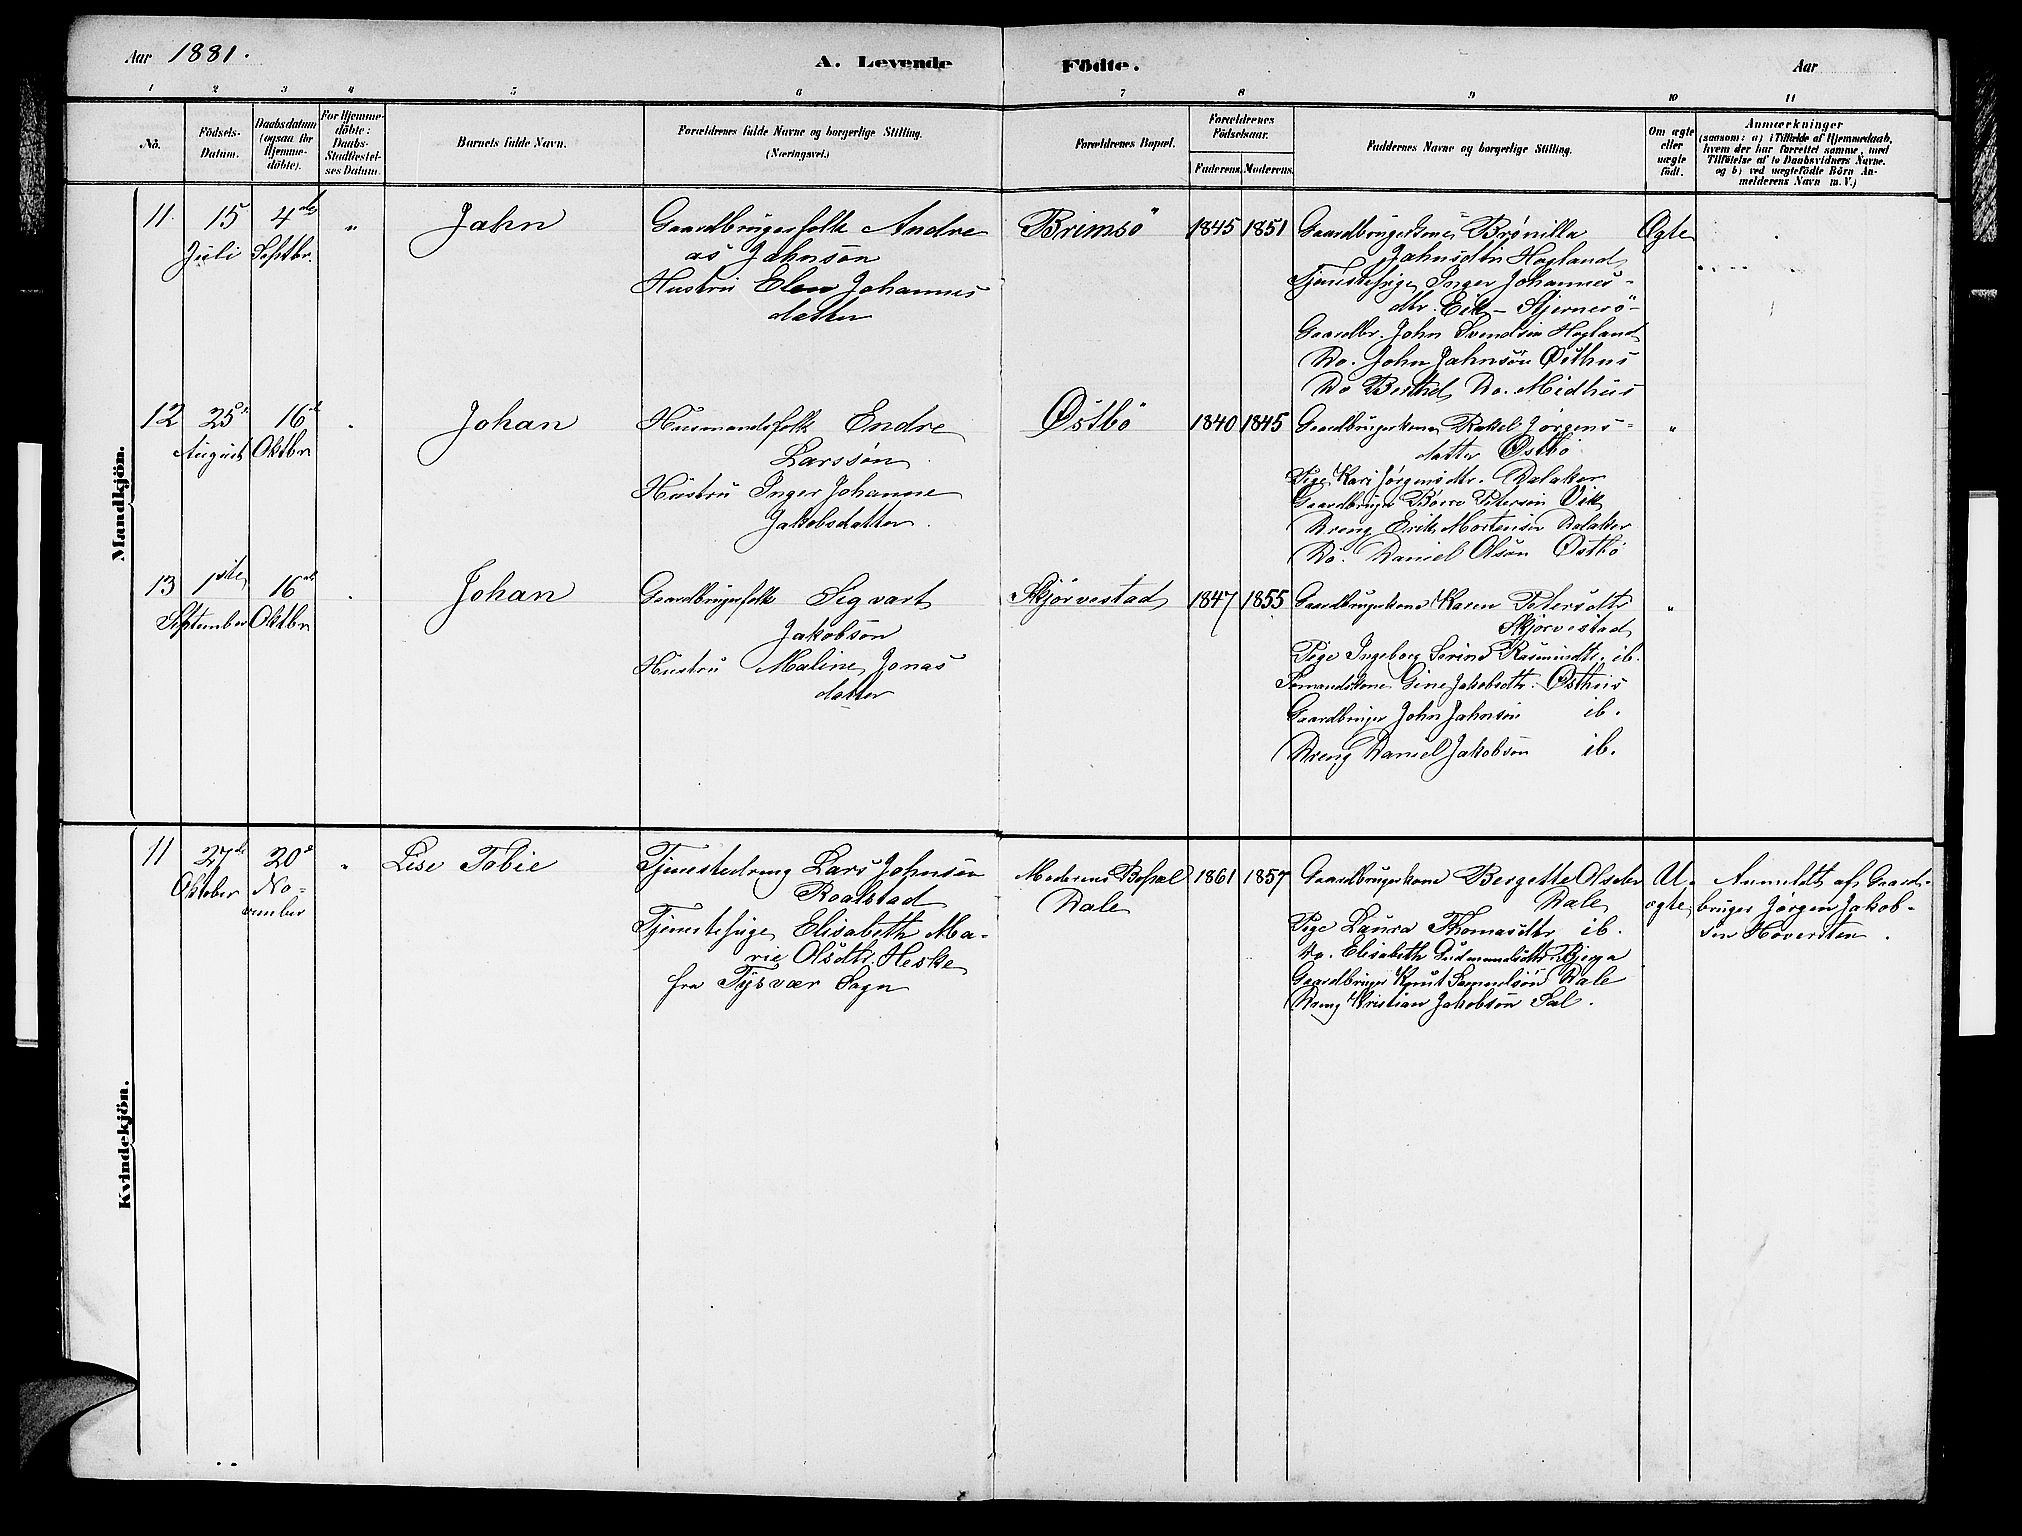 Aar 1881.
A. Levende Födte.
Aar
1 2 3 4 5 6 7 8 9 10 11
No.
Födsels-Datum.
Daabsdatum (ogsaa for Hjemme-döbte).
For Hjemme-döbte: Daabs-Stadfæstel-ses Datum.
Barnets fulde Navn.
Forældrenes fulde Navne og borgerlige Stilling. (Næringsvei.)
Forældrenes Bopæl.
Forældrenes Födselsaar.
Faderens. Moderens.
Faddernes Navne og borgerlige Stilling.
Om ægte eller uægte födt.
Anmærkninger
(saasom: a) i Tilfælde af Hjemmedaab, hvem der har forrettet samme, med Tilföielse af to Daabsvidners Navne. og b) ved uægtefödte Börn An-melderens Navn m. V.)
Mandkjön.
11. 15 Juli
4de Septbr.
"
Jahn
Gaardbrugerfolk Andre
as Jahnsøn
Hustru Elen Johannes
datter
Brimsö
1845 1851
Gaardbrugerkone Brønilla
Jahnsdtr Hogland
Tjenestepige Inger Johannes-
dtr. Eik - Stjernerö-
Gaardbr. John Svendsen Hogland
Do. John Jahnsøn Østhus
Do Berthel Do. Midhus
Ægte
12 25de August
16de Oktbr
Johan
Husmandsfolk Endre
Larssøn
Hustru Inger Johanne
Jakobsdatter.
Østbö
1840 1845
Gaardbrugerkone Rakel Jørgens-
datter Østbö
Pige Kari Jørgensdtr. Dalaker
Gaardbruger Børre Petersen Vik
Dreng Erik Mortensen Dalaker
Do. Daniel Olsøn Østbö
"
13 1ste September
16de Oktbr
Johan
Gaardbrugerfolk Sigvart
Jakobsøn
Hustru Maline Jonas
datter
Skjørvestad
1847 1855
Gaardbrugerkone Karen Petersdtr
Skjørvestad
Pige Ingeborg Serine Rasmusdtr. ib.
Gine Jakobsdtr. Østhus
Gaardbruger John Jahnsøn ib.
Dreng Daniel Jakobsøn ib.
"
Kvindekjön.
11 27de Oktober
20de No-
vember
"
Lise Tobie
Tjenestedreng Lars Johnsøn
Roalstad
Tjenestepige Elisabeth Ma-
rie Olsdtr. Heske
fra Tysvær Sogn
Moderens Bopæl
Dale
1861 1857
Gaardbrugerkone Bergette Olsdtr
Dale
Pige Laura Thomasdtr ib.
Do. Elisabeth Gudmundsdtr Bjerga
Gaardbruger Knut Samuelsøn Dale
Dreng Kristian Jakobsøn Sal.
U-
ægte
Anmeldt af Gaard-
bruger Jørgen Jakob-
sen Hoversten.